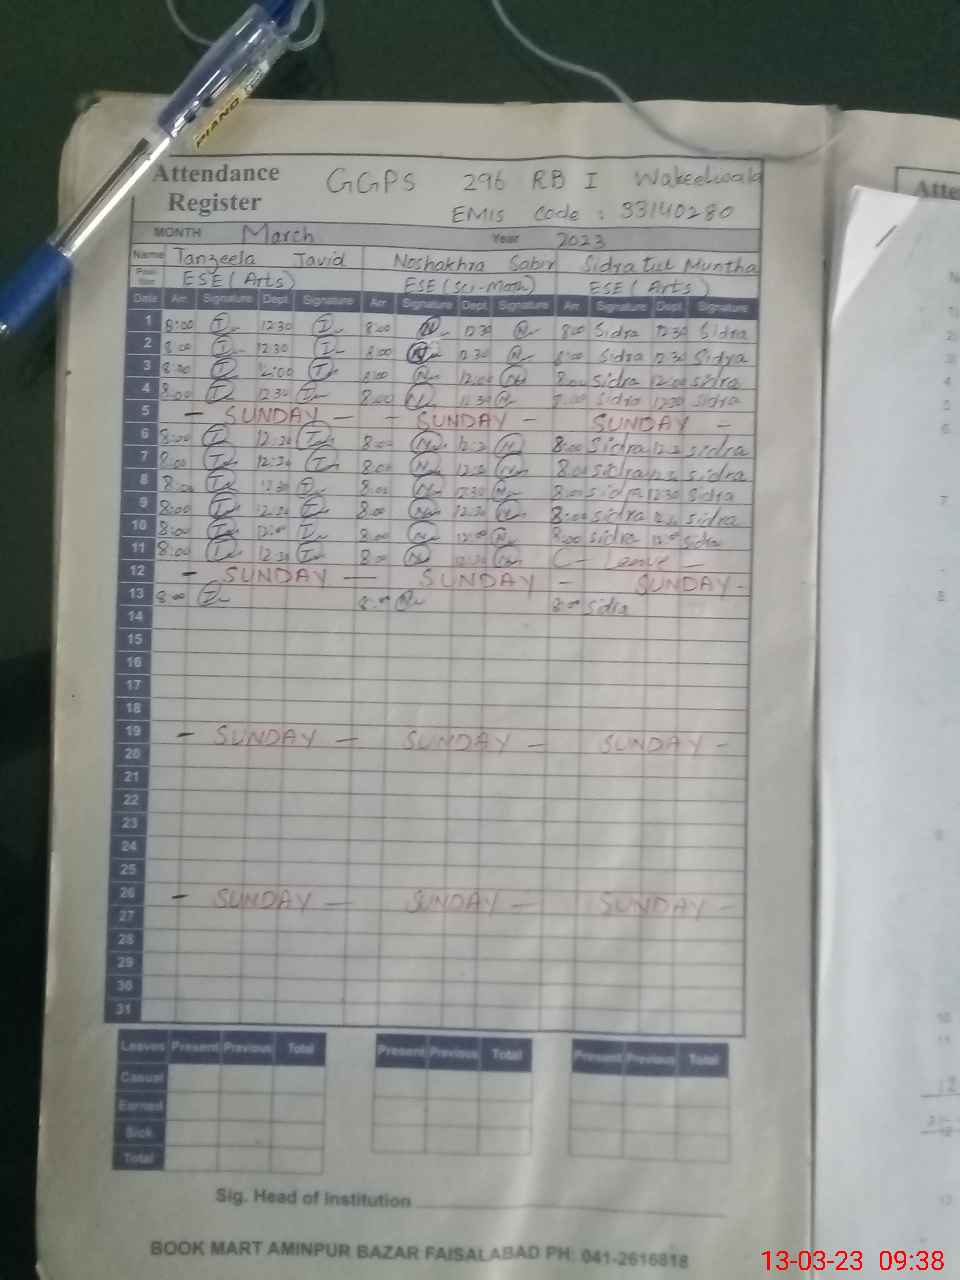 PIANO
Attendance Register
GGPS 296 RB I Wakeelwala
EMIS Code : 33140280
MONTH March Year 2023
Name Tanzeela Javid Noshakhra Sabir Sidra tul Muntha
ESE (Arts) ESE (Sci-Math) ESE (Arts)
Date Arr. Signature Dept. Signature Arr. Signature Dept. Signature Arr. Signature Dept. Signature
1 8:00 12:30 8:00 12:30 8:00 Sidra 12:30 Sidra
2 8:00 12:30 8:00 12:30 8:00 Sidra 12:30 Sidra
3 8:00 12:00 8:00 12:00 8:00 Sidra 12:00 Sidra
4 8:00 12:30 8:00 12:30 8:00 Sidra 12:30 Sidra
5 - SUNDAY - - SUNDAY - SUNDAY -
6 8:00 12:30 8:00 8:00 Sidra Sidra
7 8:00 12:30 8:00 8:00 Sidra Sidra
8 8:00 12:30 8:00 12:30 8:00 Sidra 12:30 Sidra
9 8:00 12:30 8:00 12:30 8:00 Sidra Sidra
10 8:00 12:00 8:00 12:00 8:00 Sidra 12:00 Sidra
11 8:00 12:30 8:00 12:30 C- Leave -
12 - SUNDAY - SUNDAY - SUNDAY -
13 8:00 8:00 8:00 Sidra
14
15
16
17
18
19 - SUNDAY - SUNDAY - SUNDAY -
20
21
22
23
24
25
26 - SUNDAY - SUNDAY - SUNDAY -
27
28
29
30
31
Leaves Present Previous Total Present Previous Total Present Previous Total
Casual
Earned
Sick
Total
Sig. Head of Institution
BOOK MART AMINPUR BAZAR FAISALABAD PH: 041-2616818
13-03-23 09:38